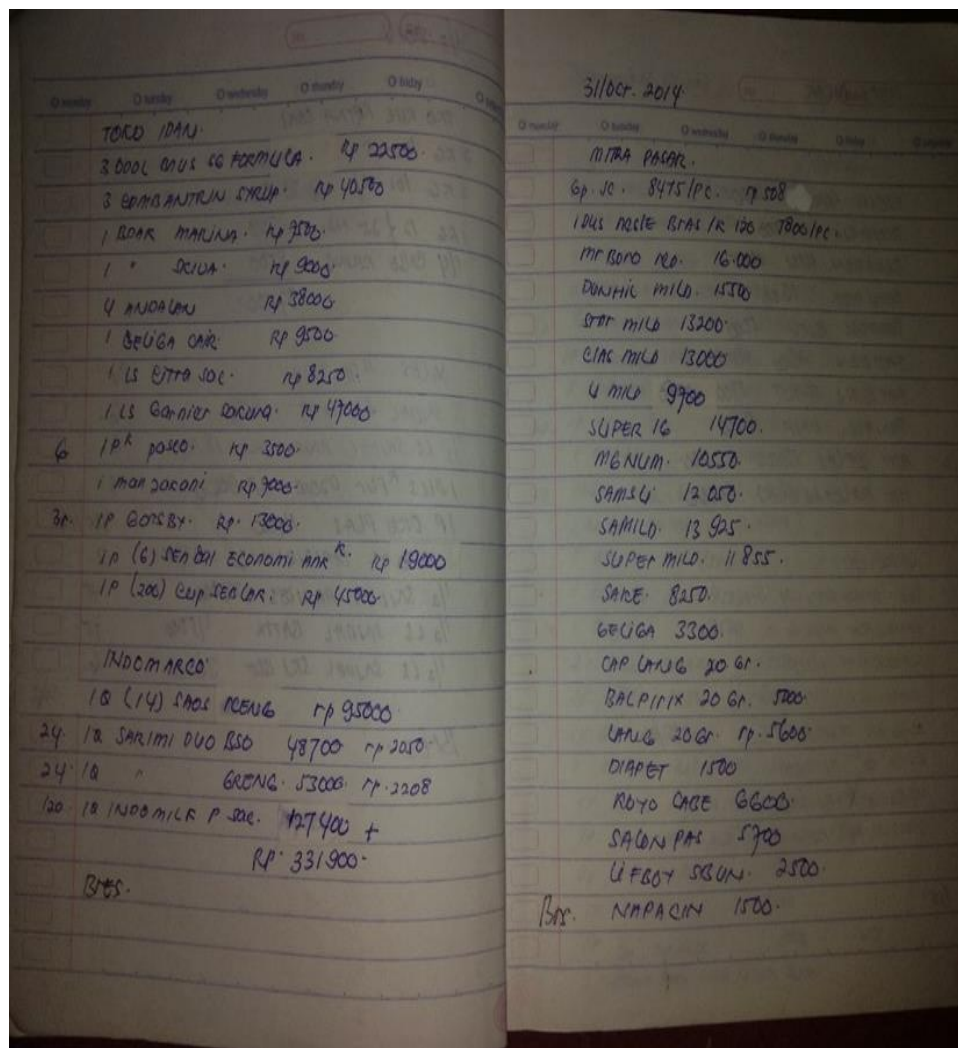 O monday O tuesday O wednesday O thursday O friday
TOKO IDAN.
3 DODOL Rp 22500.
3 COMBANTRIN SYRUP. Rp 40500
1 BDAK MARINA. Rp 9500.
1 " Rp 9000.
4 ANDALAN Rp 38000
1 GELIGA CAIR. Rp 9500.
1 LS CITRA SOC. Rp 8250.
1 LS Garnier SAKURA. Rp 47000
6 1 PK paseo. Rp 3500.
1 manjakani Rp 7000.
1P GATSBY. Rp. 13000.
1P (6) SENDAL ECONOMI ANK K. Rp 19000
1P (200) CUP Rp 45000.
INDOMARCO.
1Q (14) SAOS rp 95000
24. 1Q SARIMI DUO BSO 48700 rp 2050.
24. 1Q " GRENG. 53000. rp. 2208
120. 1Q INDOMILK P SAC. 127400 +
RP. 331900.-
31/OCT. 2014
O monday O tuesday O wednesday O thursday O friday
MITRA PASAR.
Gp. SC. 8475/PC. rp 508
1 DUS 120 7800/PC.
16.000
DUNHIL MILD. 15500
STAR MILD 13200.
CLAS MILD 13000
U MILD 9700
SUPER 16 14700.
MGNUM. 10550.
SAMSU 12050.
SAMILD. 13925.
SUPER MILD. 11855.
SAKE. 8250.
GELIGA 3300.
CAP LANG 20 Gr.
BALPIRIX 20 Gr. 5000.
LANG 20 Gr. rp. 5600.
DIAPET 1500
ROYO CABE 6600.
SALONPAS 5700
LIFBOY SBUN. 2500.
NAPACIN 1500.